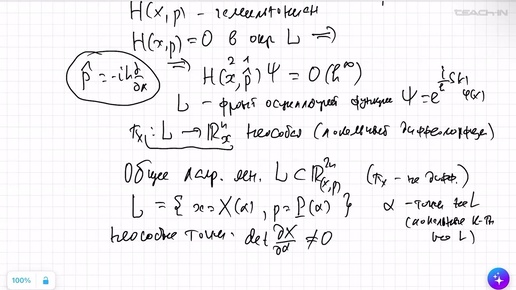 TEACH-IN
H(x,p) - гамильтониан
H(x,p) = 0 в окр L ⟹
p̂ = -ih ∂/∂x ⟹ H(x², p̂¹) Ψ = O(h^∞)
L - фронт осциллирующей функции Ψ = e^{i/h S(x)} φ(x)
π_x : L → ℝⁿ_x неособая (локальный диффеоморфизм)
Общее лагр. мн. L ⊂ ℝ²ⁿ_(x,p) (π_x - не дифф.)
L = { x = X(α), p = P(α) } α - точки на L
(локальные к-ты на L)
неособые точки: det ∂X/∂α ≠ 0
100%